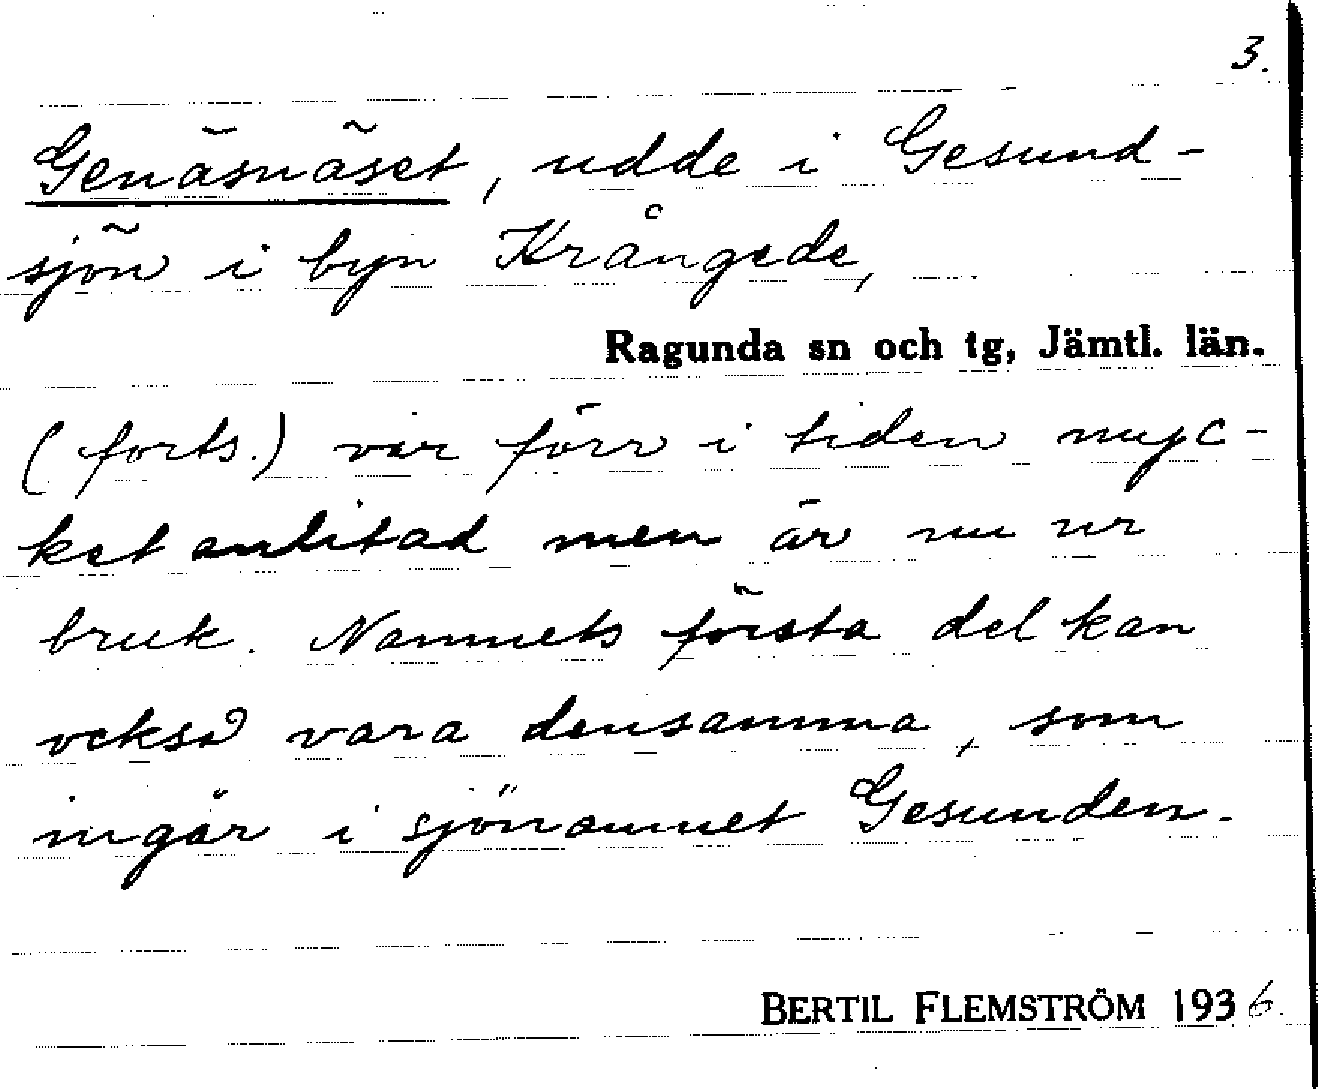 3.
Genäsnäset, udde i Gesund-
sjön i byn Krångede,
Ragunda sn och tg, Jämtl. län.
(forts.) var förr i tiden myc-
ket anlitad men är nu ur
bruk. Namnets första del kan
också vara densamma, som
ingår i sjönamnet Gesunden.
BERTIL FLEMSTRÖM 1936.